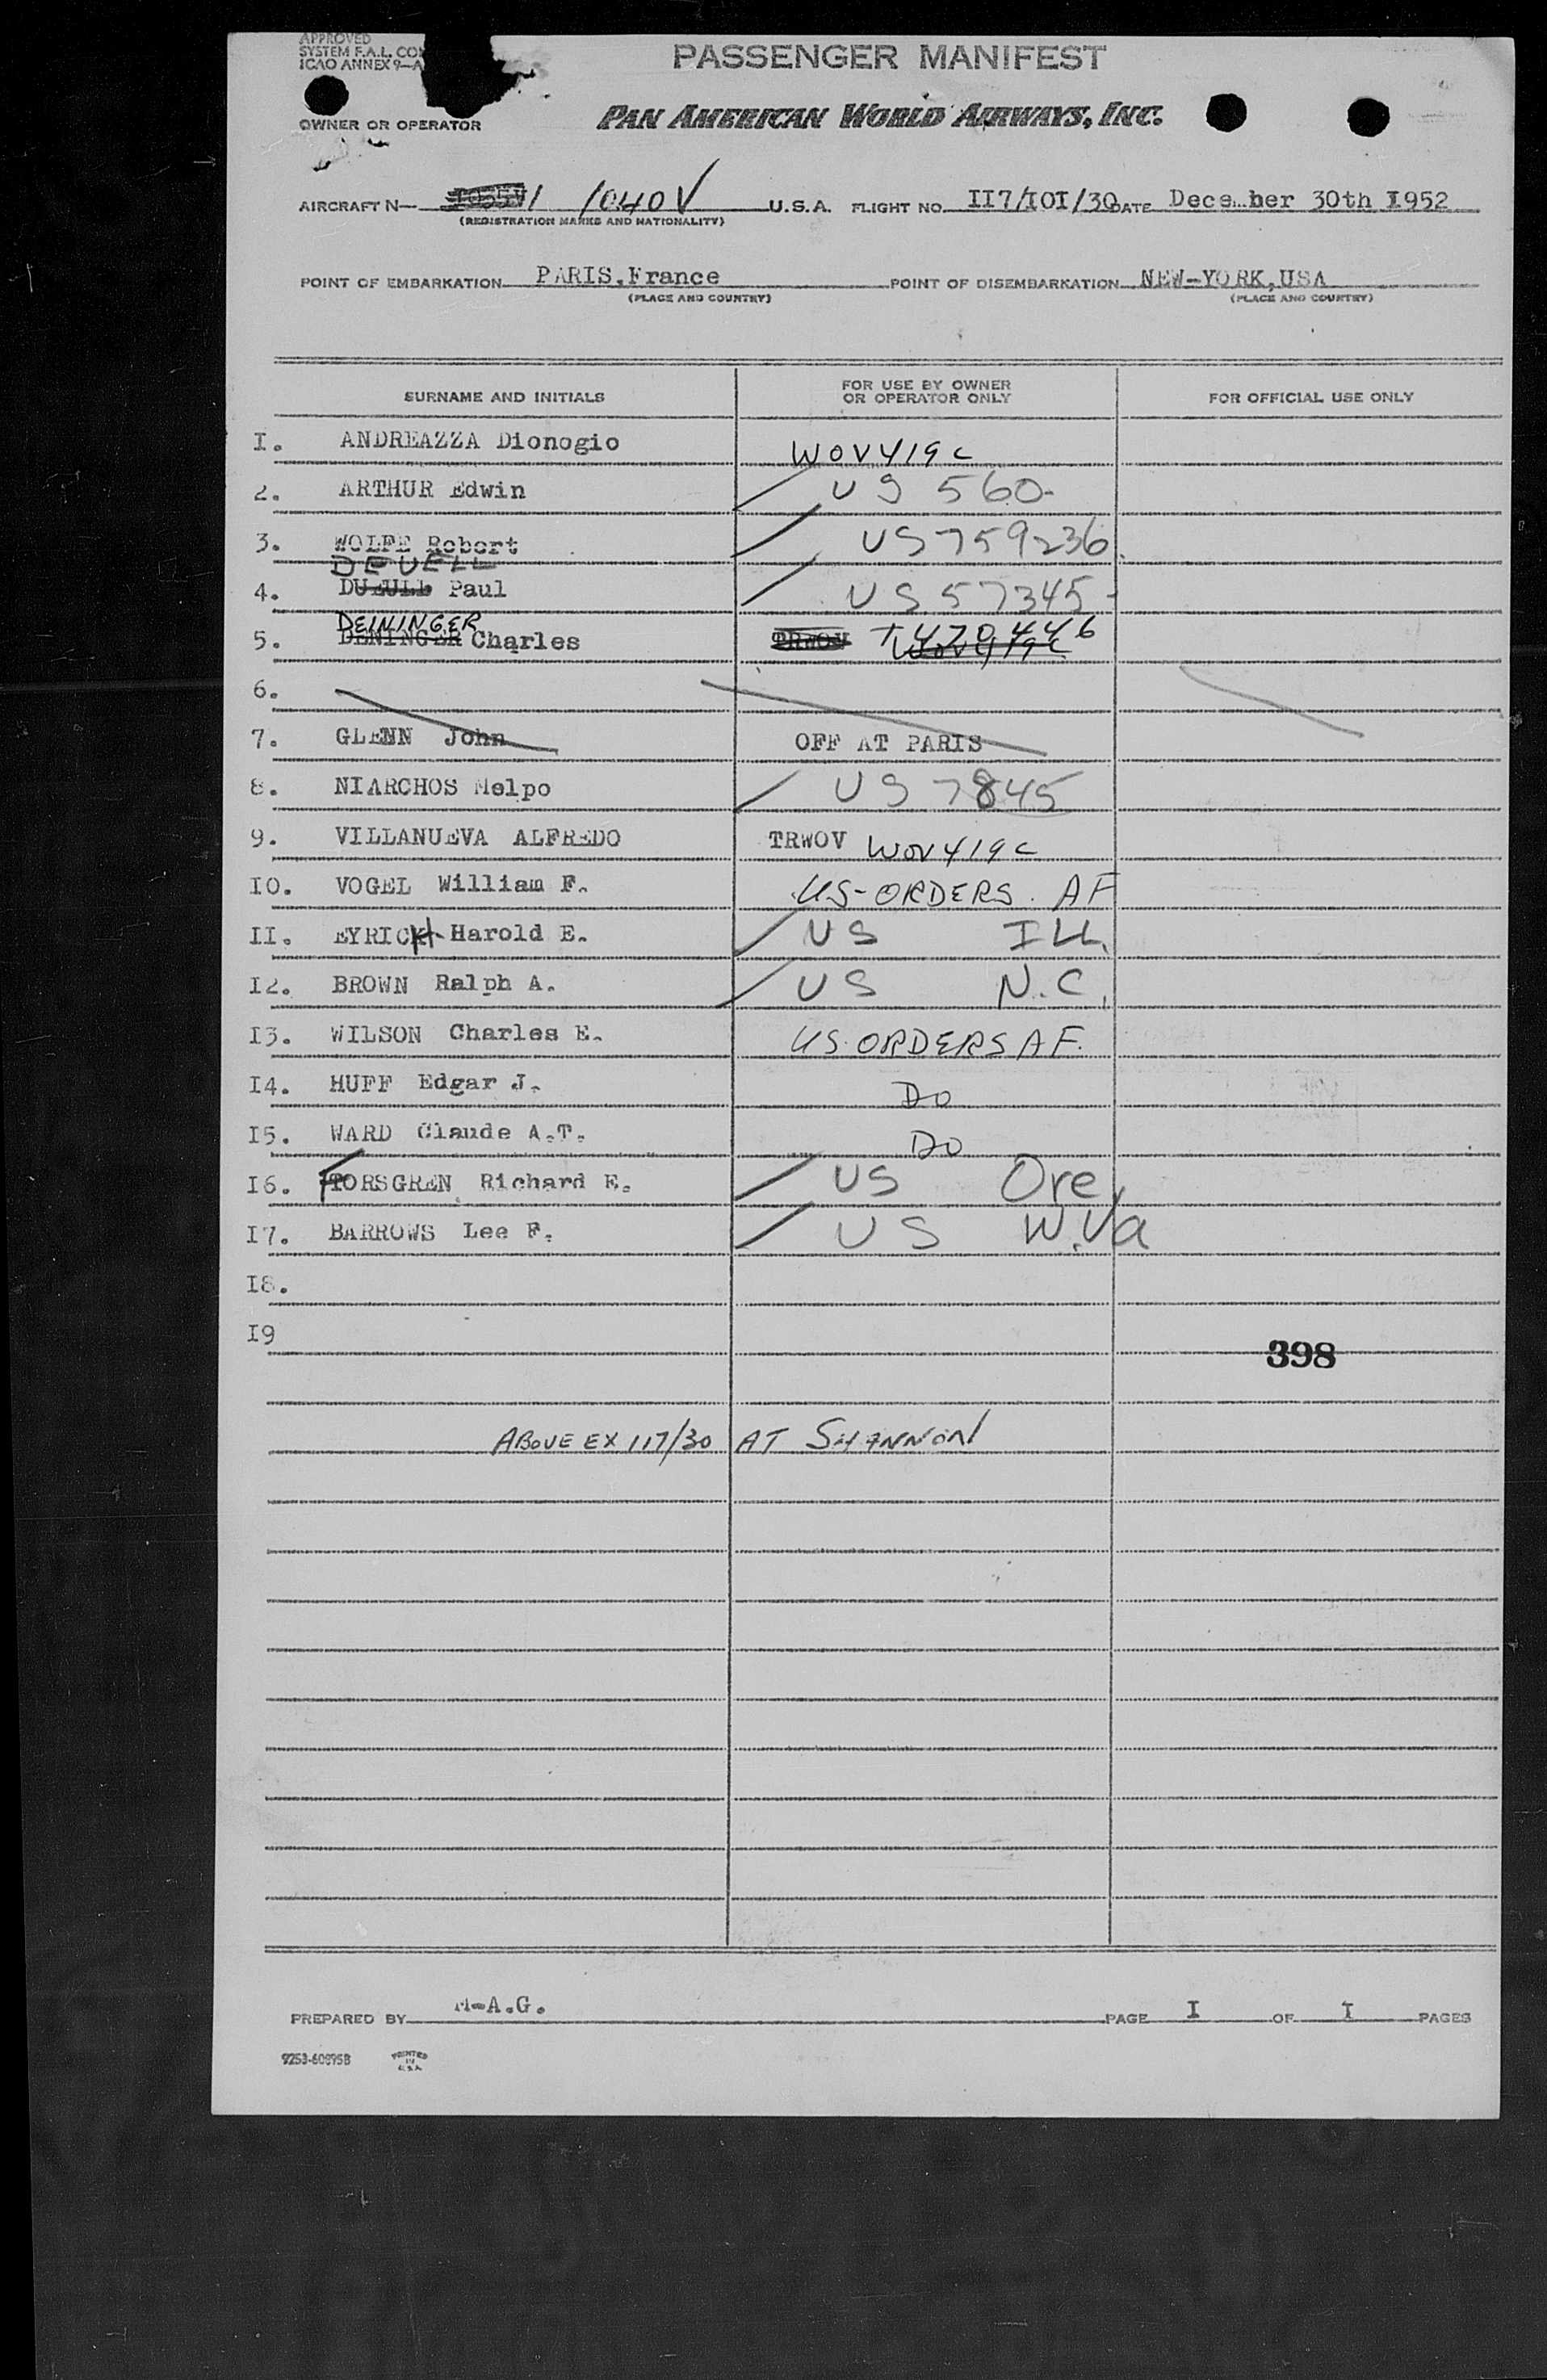 APPROVED
SYSTEM F.A.L.
ICAO ANNEX 9—A
PASSENGER MANIFEST
OWNER OR OPERATOR
PAN AMERICAN WORLD AIRWAYS, INC.
AIRCRAFT N— 1040V U.S.A. FLIGHT NO. II7/IOI/30 DATE Dece ber 30th I952
(REGISTRATION MARKS AND NATIONALITY)
POINT OF EMBARKATION PARIS,France POINT OF DISEMBARKATION NEW-YORK,USA
(PLACE AND COUNTRY) (PLACE AND COUNTRY)
SURNAME AND INITIALS FOR USE BY OWNER OR OPERATOR ONLY FOR OFFICIAL USE ONLY
I. ANDREAZZA Dionogio WOV419C
2. ARTHUR Edwin US 560-
3. WOLFE Robert US759236
DEVELL
4. Paul US 57345-
DEININGER
5. DENINGER Charles TRWOV T470446 WOV419C
6.
7. GLENN John OFF AT PARIS
8. NIARCHOS Melpo US 7845
9. VILLANUEVA ALFREDO TRWOV WOV419C
IO. VOGEL William F. US-ORDERS. AF
II. EYRICH Harold E. US ILL.
I2. BROWN Ralph A. US N.C.
I3. WILSON Charles E. US ORDERS AF.
I4. HUFF Edgar J. DO
I5. WARD Claude A.T. DO
I6. FORSGREN Richard E. US Ore
I7. BARROWS Lee F. US W.Va
I8.
I9
398
ABOVE EX 117/30 AT SHANNON
PREPARED BY M-A.G. PAGE I OF I PAGES
9253-60895B PRINTED IN U.S.A.